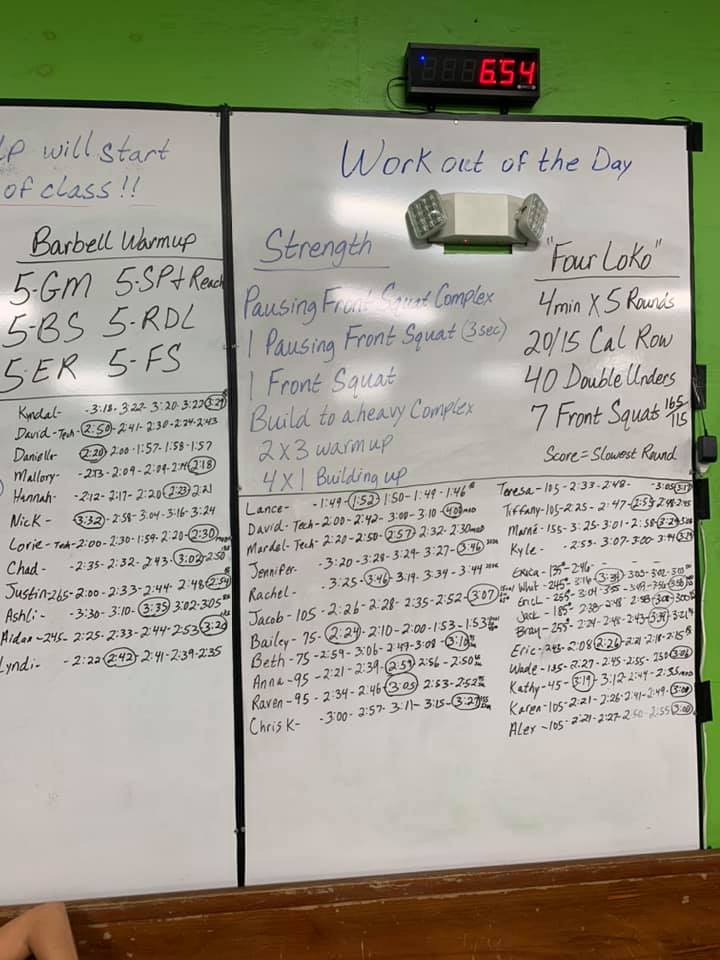 6:54
LP will start
of class!!
Barbell Warmup
5-GM 5-SP & Reach
5-BS 5-RDL
5-ER 5-FS
Kyndal- -3:18-3:22-3:20-3:22
David-Tech-2:50-2:41-2:30-2:24-2:43
Danielle- 2:20-2:00-1:57-1:58-1:57
Mallory- -2:09-2:09- 2:18
Hannah- -2:12-2:17-2:20-2:23-2:21
Nick- 3:32-2:58-3:04-3:16-3:24
Lorie-Tech-2:00-2:30-1:59-2:20-2:30
Chad- -2:35-2:32-2:43-3:02-2:50
Justin-265-2:00-2:33-2:44-2:48-2:54
Ashli- -3:30-3:10-3:35-3:02-3:05
Aidan-245-2:25-2:33-2:44-2:53
Lyndi- -2:22-2:42-2:41-2:39-2:35
Work out of the Day
Strength
Pausing Front Squat Complex
1 Pausing Front Squat (3sec)
1 Front Squat
Build to a heavy Complex
2 x 3 warmup
4 x 1 Building up
"Four Loko"
4min X 5 Rounds
20/15 Cal Row
40 Double Unders
7 Front Squats 165/115
Score=Slowest Round
Lance- -1:49-1:52-1:50-1:49-1:46
David-Tech-2:00-2:42-3:00-3:10
Mardel-Tech-2:20-2:50-2:57-2:32-2:30
Jennifer- -3:20-3:28-3:29-3:27-3:46
Rachel- -3:25-3:46-3:19-3:34-3:44
Jacob-105-2:26-2:28-2:35-2:52-3:07
Bailey-75-2:24-2:10-2:00-1:53-1:53
Beth-75-2:59-3:06-2:49-3:08-3:10
Anna-95-2:21-2:39-2:59-2:56-2:50
Raven-95-2:34-2:46-3:05-2:53-2:52
Chris K- -3:00-2:57-3:11-3:15-3:27
Teresa-105-2:33-2:48- -3:05
Tiffany-105-2:25-2:47
Marné-155-3:25-3:01-2:58
Kyle- -2:53-3:07-3:00
Erica-135
Whit-245
Erich-265
Jack-185
Bray-255
Eric-245-2:08-2:26-2:21-2:18-2:15
Wade-185-2:27-2:45-2:55-2:50-3:06
Kathy-45-3:19-3:12-2:49-2:35
Karen-105-2:21-2:26-2:41-2:49
Aler-105-2:21-2:27-2:50-2:55-3:00